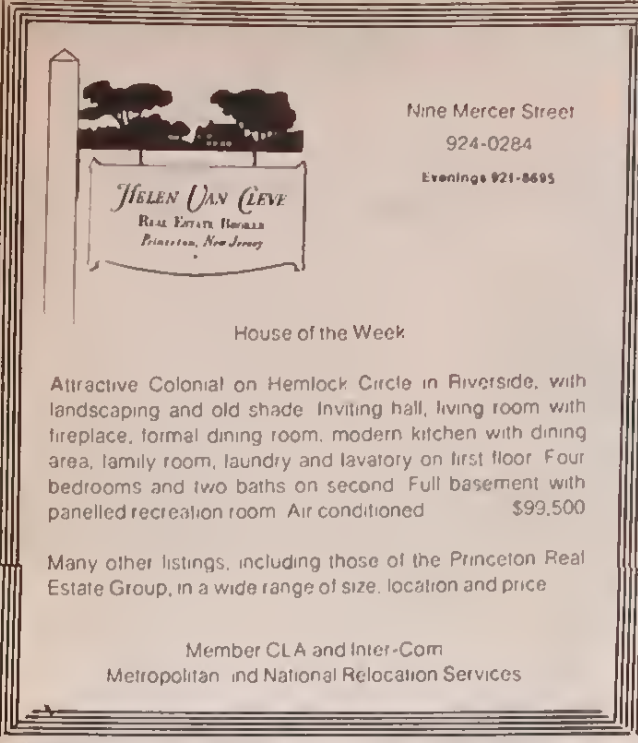 Helen Van Cleve
Real Estate Broker
Princeton, New Jersey
Nine Mercer Street
924-0284
Evenings 921-8695
House of the Week
Attractive Colonial on Hemlock Circle in Riverside, with
landscaping and old shade Inviting hall, living room with
fireplace, formal dining room, modern kitchen with dining
area, family room, laundry and lavatory on first floor Four
bedrooms and two baths on second Full basement with
panelled recreation room Air conditioned $99,500
Many other listings, including those of the Princeton Real
Estate Group, in a wide range of size, location and price
Member CLA and Inter-Com
Metropolitan and National Relocation Services